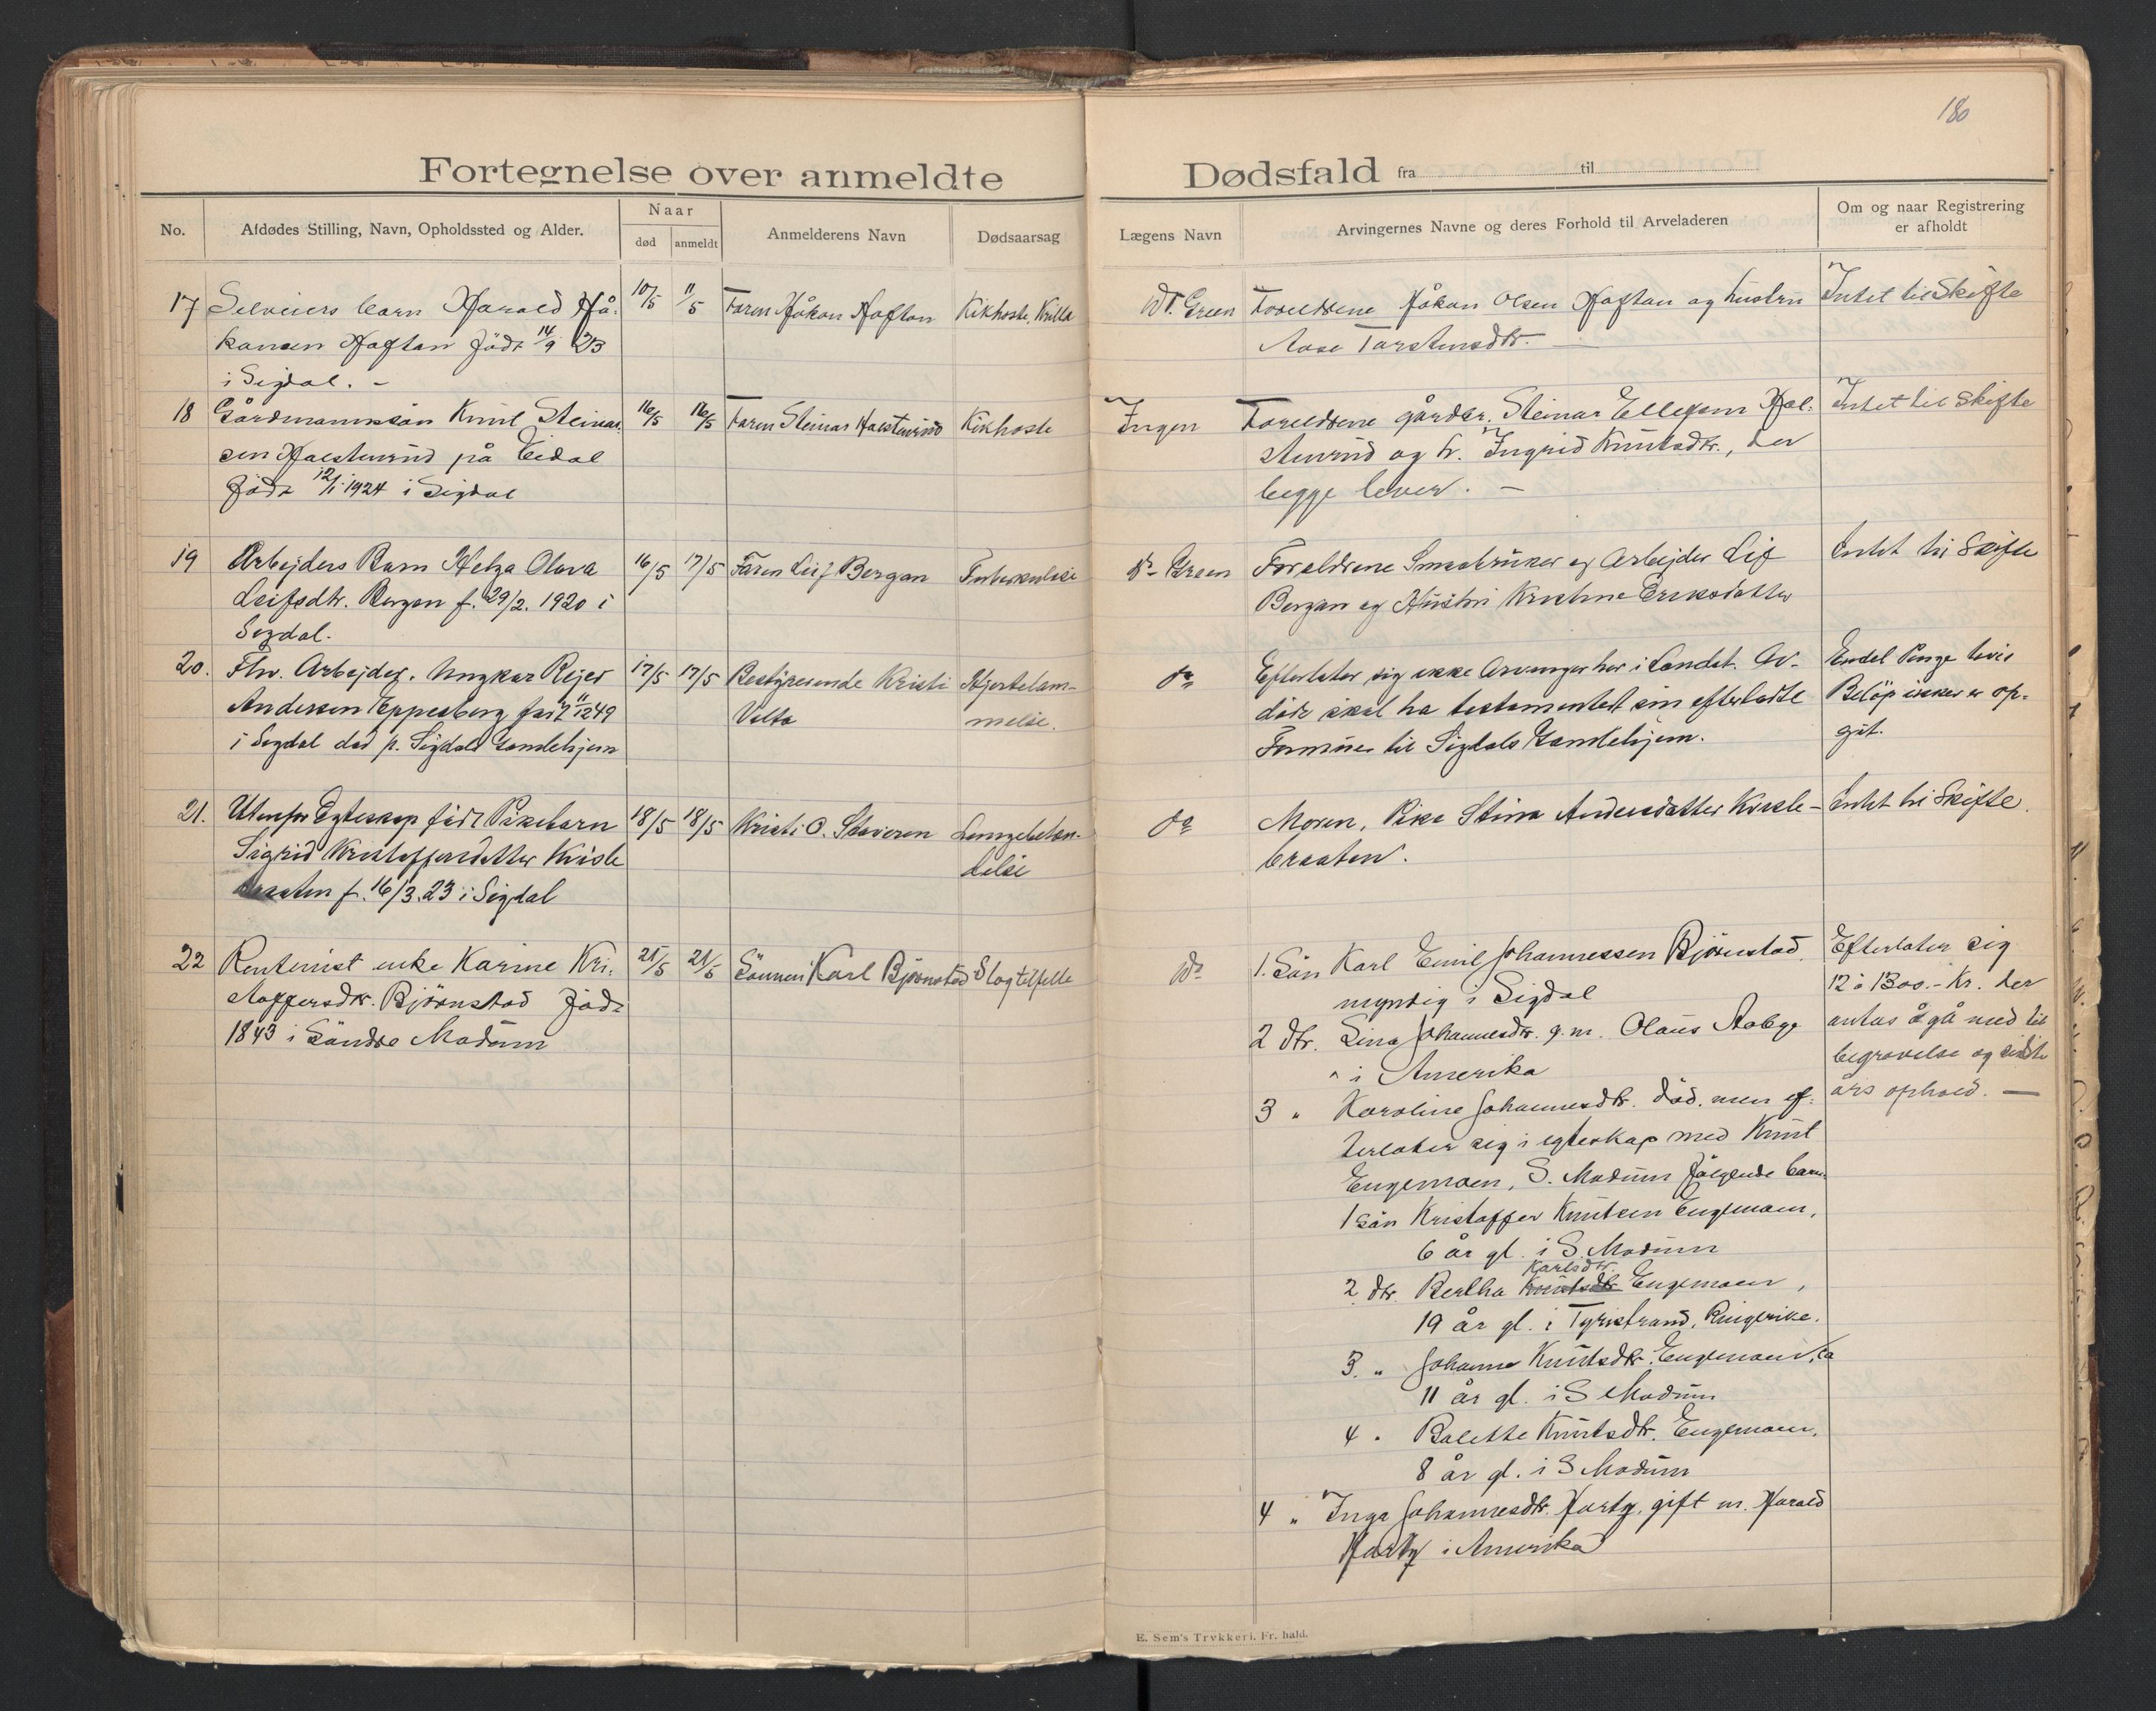 180
Fortegnelse over anmeldte Dødsfald fra til
No.
Afdødes Stilling, Navn, Opholdssted og Alder.
Naar
død
anmeldt
Anmelderens Navn
Dødsaarsag
Lægens Navn
Arvingernes Navne og deres Forhold til Arveladeren
Om og naar Registrering
er afholdt
17 Selveiers barn Harald Hå-
kansen Haftan född 14/9 23
i Sigdal. -
10/5
11/5
Faren Håkon Haftan
Kikhoste,
Dr. Green
Foreldrene Håkon Olsen Haftan og hustru
Aase Torstensdtr. —
Intet til Skifte
18 Gårdmannssön Knut Steinar-
sen Halstenrud på Eidal
född 12/1 1924 i Sigdal
16/5
16/5
Faren Steinar Halstenrud
Kikhoste
Ingen
Foreldrene gårdbr. Steinar Ellefsen Hal-
stenrud og h. Ingrid Knutsdtr., der
begge lever. —
Intet til Skifte
19 Arbejders Barn Helga Olava
Leifsdtr. Bergan f. 29/2. 1920 i
Sigdal.
16/5
17/5
Faren Leif Bergan
Tuberkulose
Dr. Green
Foreldrene Smaabruker og Arbejder Lif
Bergan og Hustru Kristine Eriksdatter
Intet til Skifte
20. Fhv. Arbejder. Ungkar Rejer
Andersen Eppesberg född 11/12 49
i Sigdal död p. Sigdals Gamlehjem
17/5
17/5
Bestyrerinde Kristi
Velta
Hjertelam-
melse.
do
Efterlater sig ikke Arvinger her i Landet. Av-
döde skal ha testamentert sin efterladte
Formue til Sigdals Gamlehjem.
Endel Penge hvis
Belöp ikke er op-
git.
21. Utenfor Egteskap född Pikebarn
Sigrid Kristoffersdatter Kvisle
braaten f. 16/3. 23 i Sigdal
18/5
18/5
Kristi O. Staveren
Lungebetæn-
delse
do
Moren, Pike Stina Andersdatter Kvisle-
braaten.
Intet til Skifte.
22 Rentenist enke Karine Kri-
stoffersdtr. Björnstad född
1843 i Söndre Modum
21/5
21/5
Sönnen Karl Björnstad
Slagtilfelle
do
1. Sön Karl Emil Johannessen Björnstad,
myndig i Sigdal
2 dtr. Lina Johannesdtr. g. m. Olaus Aaby
i Amerika
3 " Karoline Johannesdtr. död. men ef-
terlater sig i egteskap med Knut
Engemoen, S. Modum følgende barn:
1 sön Kristoffer Knutsen Engemoen,
6 år gl. i S. Modum
Karlsdtr.
2 dtr. Bertha Knutsdtr Engemoen,
19 år gl. i Tyristrand, Ringerike.
3. " Johanne Knutsdtr. Engemoen, ca
11 år gl. i S Modum
4 " Bolette Knutsdtr. Engemoen,
8 år gl. i S Modum
4 " Inga Johannesdtr. Hartz, gift m. Harald
Hartz i Amerika
Efterlater sig
12 à 1300.- Kr. der
antas å gå med til
begravelse og sidste
års ophold. —
E. Sem's Trykkeri, Fr. hald.